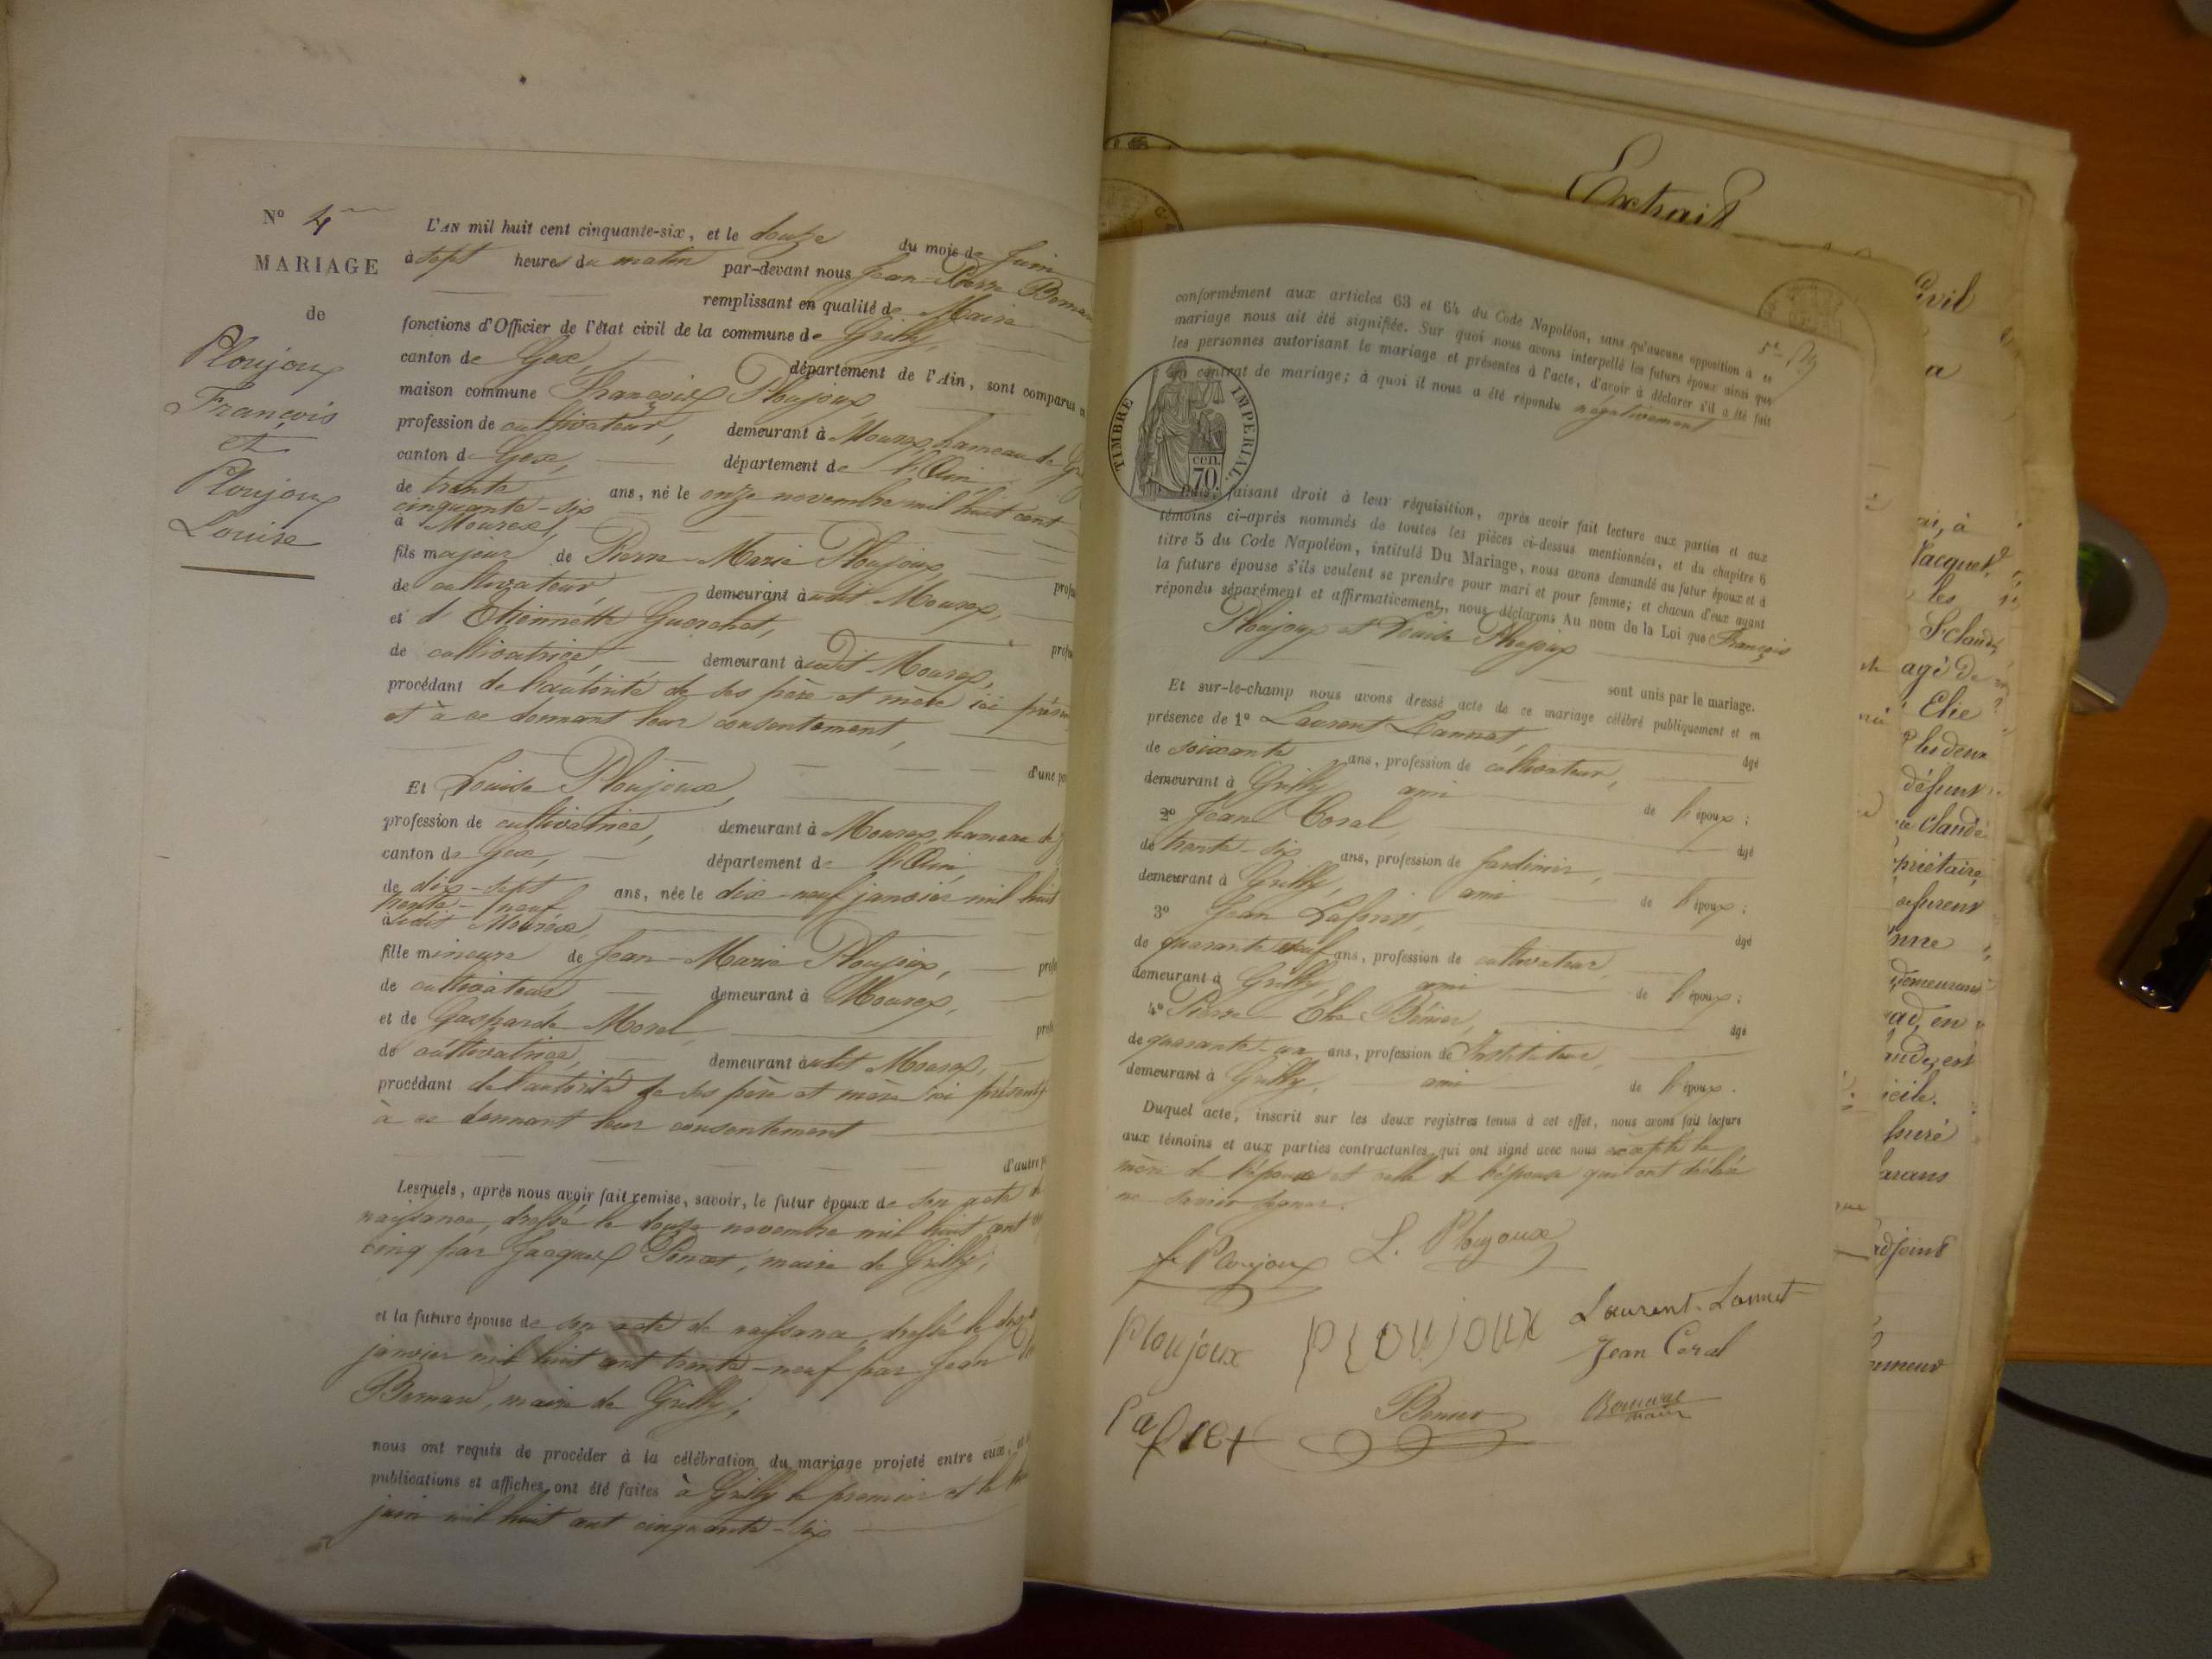 Nº 4
MARIAGE
de
Ploujoux
François
et
Ploujoux
Louise
L'AN mil huit cent cinquante-six, et le douze du mois de Juin
à sept heures du matin par-devant nous Jean-Pierre
remplissant en qualité de Maire
fonctions d'Officier de l'état civil de la commune de Grilly
canton de Gex, département de l'Ain, sont comparus
maison commune François Ploujoux,
profession de cultivateur, demeurant à Mourex, hameau de
canton de Gex, département de l'Ain,
de trente ans, né le onze novembre mil huit cent
cinquante-six
à Mourex,
fils majeur de Pierre-Marie Ploujoux,
de cultivateur, demeurant audit Mourex,
et d'Etiennette
de cultivatrice, demeurant audit Mourex,
procédant de l'autorité de ses père et mère ici
et à ce donnant leur consentement,
d'une
Et Louise Ploujoux,
profession de cultivatrice, demeurant à Mourex, hameau de
canton de Gex, département de l'Ain
de dix-sept ans, née le dix-neuf janvier mil huit
trente-neuf
audit Mourex,
fille mineure de Jean-Marie Ploujoux,
de cultivateur, demeurant à Mourex,
et de Gasparde Morel,
de cultivatrice, demeurant audit Mourex,
procédant de l'autorité de ses père et mère ici présents
à ce donnant leur consentement
d'autre
Lesquels, après nous avoir fait remise, savoir, le futur époux de son acte
naissance, dressé le douze novembre mil huit cent
cinq par Jacques maire de Grilly;
et la future épouse de son acte de naissance dressé le
janvier mil huit cent trente-neuf par Jean
maire de Grilly;
nous ont requis de procéder à la célébration du mariage projeté entre eux,
publications et affiches ont été faites à Grilly le premier et le
juin mil huit cent cinquante-six
Extrait
conformément aux articles 63 et 64 du Code Napoléon, sans qu'aucune opposition à ce
mariage nous ait été signifiée. Sur quoi nous avons interpellé les futurs époux ainsi que
les personnes autorisant le mariage et présentes à l'acte, d'avoir à déclarer s'il a été fait
un contrat de mariage; à quoi il nous a été répondu négativement
TIMBRE IMPERIAL.
70 cen.
Puis, faisant droit à leur réquisition, après avoir fait lecture aux parties et aux
témoins ci-après nommés de toutes les pièces ci-dessus mentionnées, et du chapitre 6
titre 5 du Code Napoléon, intitulé Du Mariage, nous avons demandé au futur époux et à
la future épouse s'ils veulent se prendre pour mari et pour femme; et chacun d'eux ayant
répondu séparément et affirmativement, nous déclarons Au nom de la Loi que François
Ploujoux et Louise Ploujoux
sont unis par le mariage.
Et sur-le-champ nous avons dressé acte de ce mariage célébré publiquement et en
présence de 1º Laurent Lannet, âgé
de soixante ans, profession de cultivateur,
demeurant à Grilly, ami de l'époux;
2º Jean Coral, âgé
de trente-six ans, profession de Jardinier,
demeurant à Grilly, ami de l'époux;
3º Jean âgé
de quarante neuf ans, profession de cultivateur,
demeurant à Grilly, ami de l'époux;
4º Pierre Elie âgé
de quarante-un ans, profession de Instituteur,
demeurant à Grilly, ami de l'époux.
Duquel acte, inscrit sur les deux registres tenus à cet effet, nous avons fait lecture
aux témoins et aux parties contractantes qui ont signé avec nous excepté la
mère de l'époux et celle de l'épouse qui ont déclaré
ne savoir signer.
Ploujoux L. Ploujoux
Ploujoux PLOUJOUX Laurent Lannet
Jean Coral
maire
Civil
Jacquet,
les
âgé de
Elie
les deux
défunt
Claude
propriétaire,
demeurant
adjoint